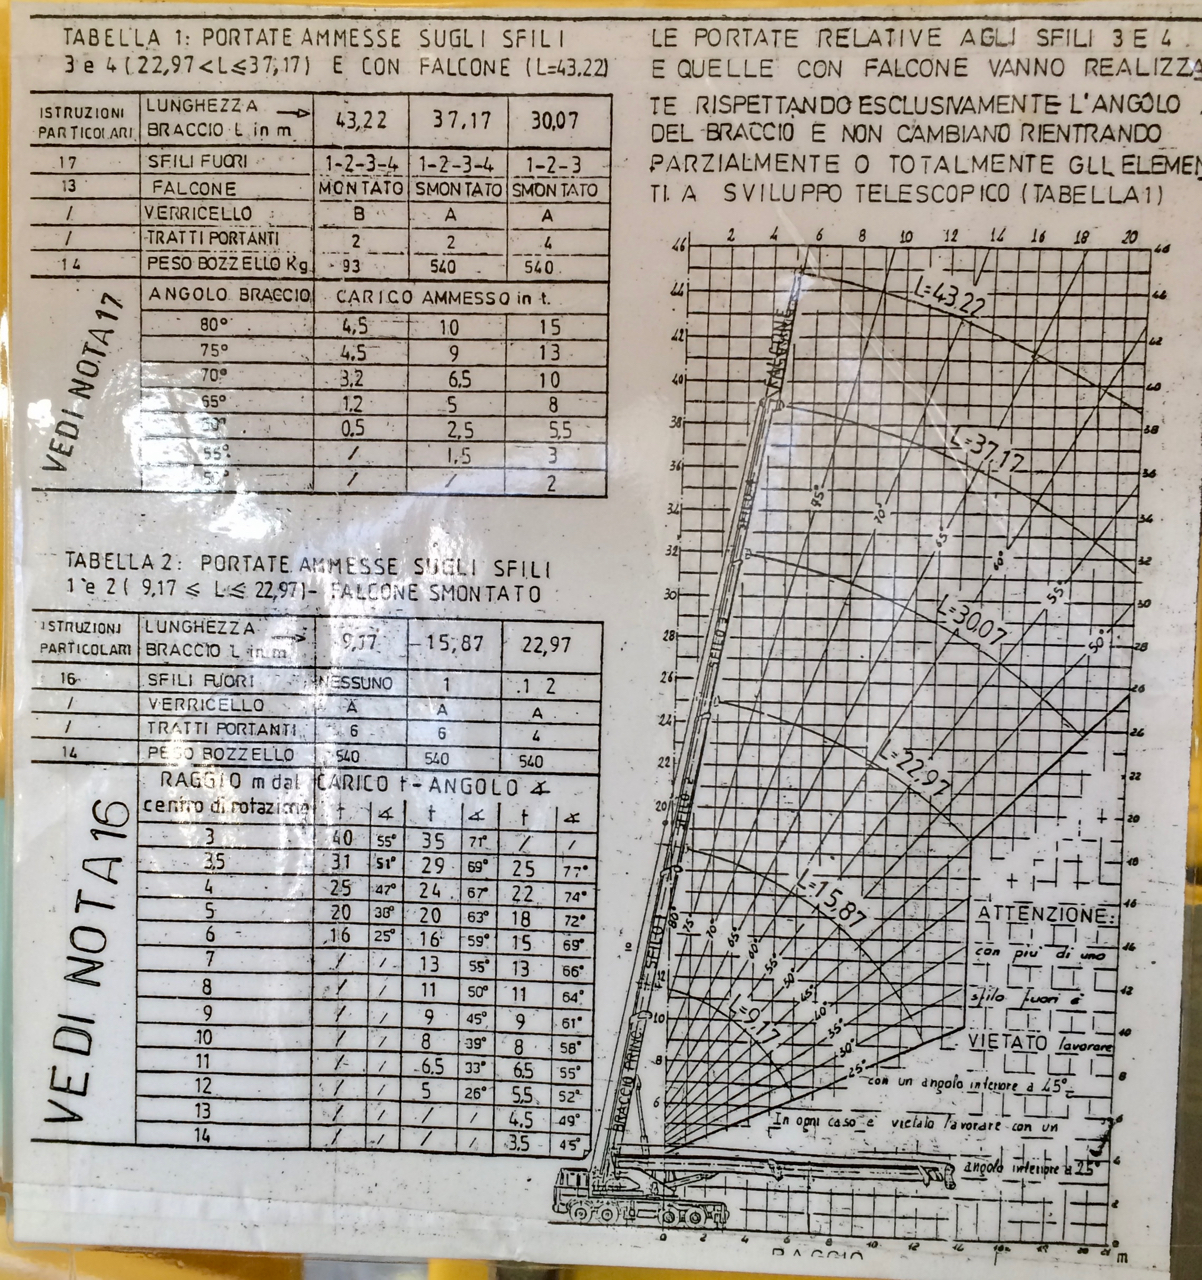 TABELLA 1: PORTATE AMMESSE SUGLI SFILI
3 e 4 (22,97<L≤37,17) E CON FALCONE (L=43,22)
ISTRUZIONI PARTICOLARI LUNGHEZZA BRACCIO L in m. 43,22 37,17 30,07
17 SFILI FUORI 1-2-3-4 1-2-3-4 1-2-3
13 FALCONE MONTATO SMONTATO SMONTATO
/ VERRICELLO B A A
/ TRATTI PORTANTI 2 2 4
14 PESO BOZZELLO Kg. 93 540 540
ANGOLO BRACCIO CARICO AMMESSO in t.
80° 4,5 10 15
75° 4,5 9 13
70° 3,2 6,5 10
65° 1,2 5 8
0,5 2,5 5,5
55° / 1,5 3
/ / 2
VEDI NOTA 17
TABELLA 2: PORTATE AMMESSE SUGLI SFILI
1 e 2 ( 9,17 ≤ L ≤ 22,97)- FALCONE SMONTATO
ISTRUZIONI PARTICOLARI LUNGHEZZA BRACCIO L in m 9,17 15,87 22,97
16 SFILI FUORI NESSUNO 1 1 2
/ VERRICELLO A A A
/ TRATTI PORTANTI 6 6 4
14 PESO BOZZELLO 540 540 540
RAGGIO m dal centro di rotazione CARICO t - ANGOLO ∡
t ∡ t ∡ t ∡
3 40 55° 35 71° / /
3,5 31 51° 29 69° 25 77°
4 25 47° 24 67° 22 74°
5 20 38° 20 63° 18 72°
6 16 25° 16 59° 15 69°
7 / / 13 55° 13 66°
8 / / 11 50° 11 64°
9 / / 9 45° 9 61°
10 / / 8 39° 8 58°
11 / / 6,5 33° 6,5 55°
12 / / 5 26° 5,5 52°
13 / / / / 4,5 49°
14 / / / / 3,5 45°
VEDI NOTA 16
LE PORTATE RELATIVE AGLI SFILI 3 E 4
E QUELLE CON FALCONE VANNO REALIZZA
TE RISPETTANDO ESCLUSIVAMENTE L'ANGOLO
DEL BRACCIO E NON CAMBIANO RIENTRANDO
PARZIALMENTE O TOTALMENTE GLI ELEMEN
TI A SVILUPPO TELESCOPICO (TABELLA 1)
2 4 6 8 10 12 14 16 18 20
46 44 42 40 38 36 34 32 30 28 26 24 22 20
L=43,22
L=37,17
L=30,07
L=22,97
L=15,87
L=9,17
75° 70° 65° 60° 55° 50°
80° 75° 70° 65° 60° 55° 50° 45° 40° 35° 30° 25°
FALCONE
SFILO 4
SFILO 3
SFILO 2
SFILO 1
BRACCIO PRINC.
ATTENZIONE:
con più di uno
sfilo fuori è
VIETATO lavorare
con un angolo inferiore a 45°
In ogni caso è vietato lavorare con un
angolo inferiore a 25°
RAGGIO
m